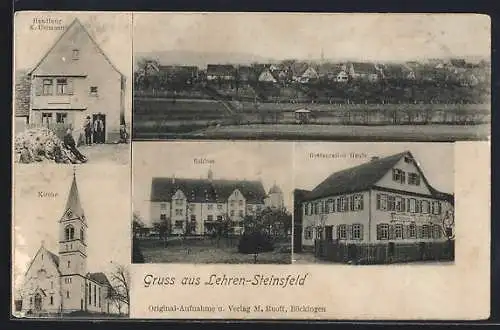 Handlung
K.
Schloss
Restauration Haufe
Kirche
Gruss aus Lehren-Steinsfeld
Original-Aufnahme u. Verlag M. Ruoff, Böckingen